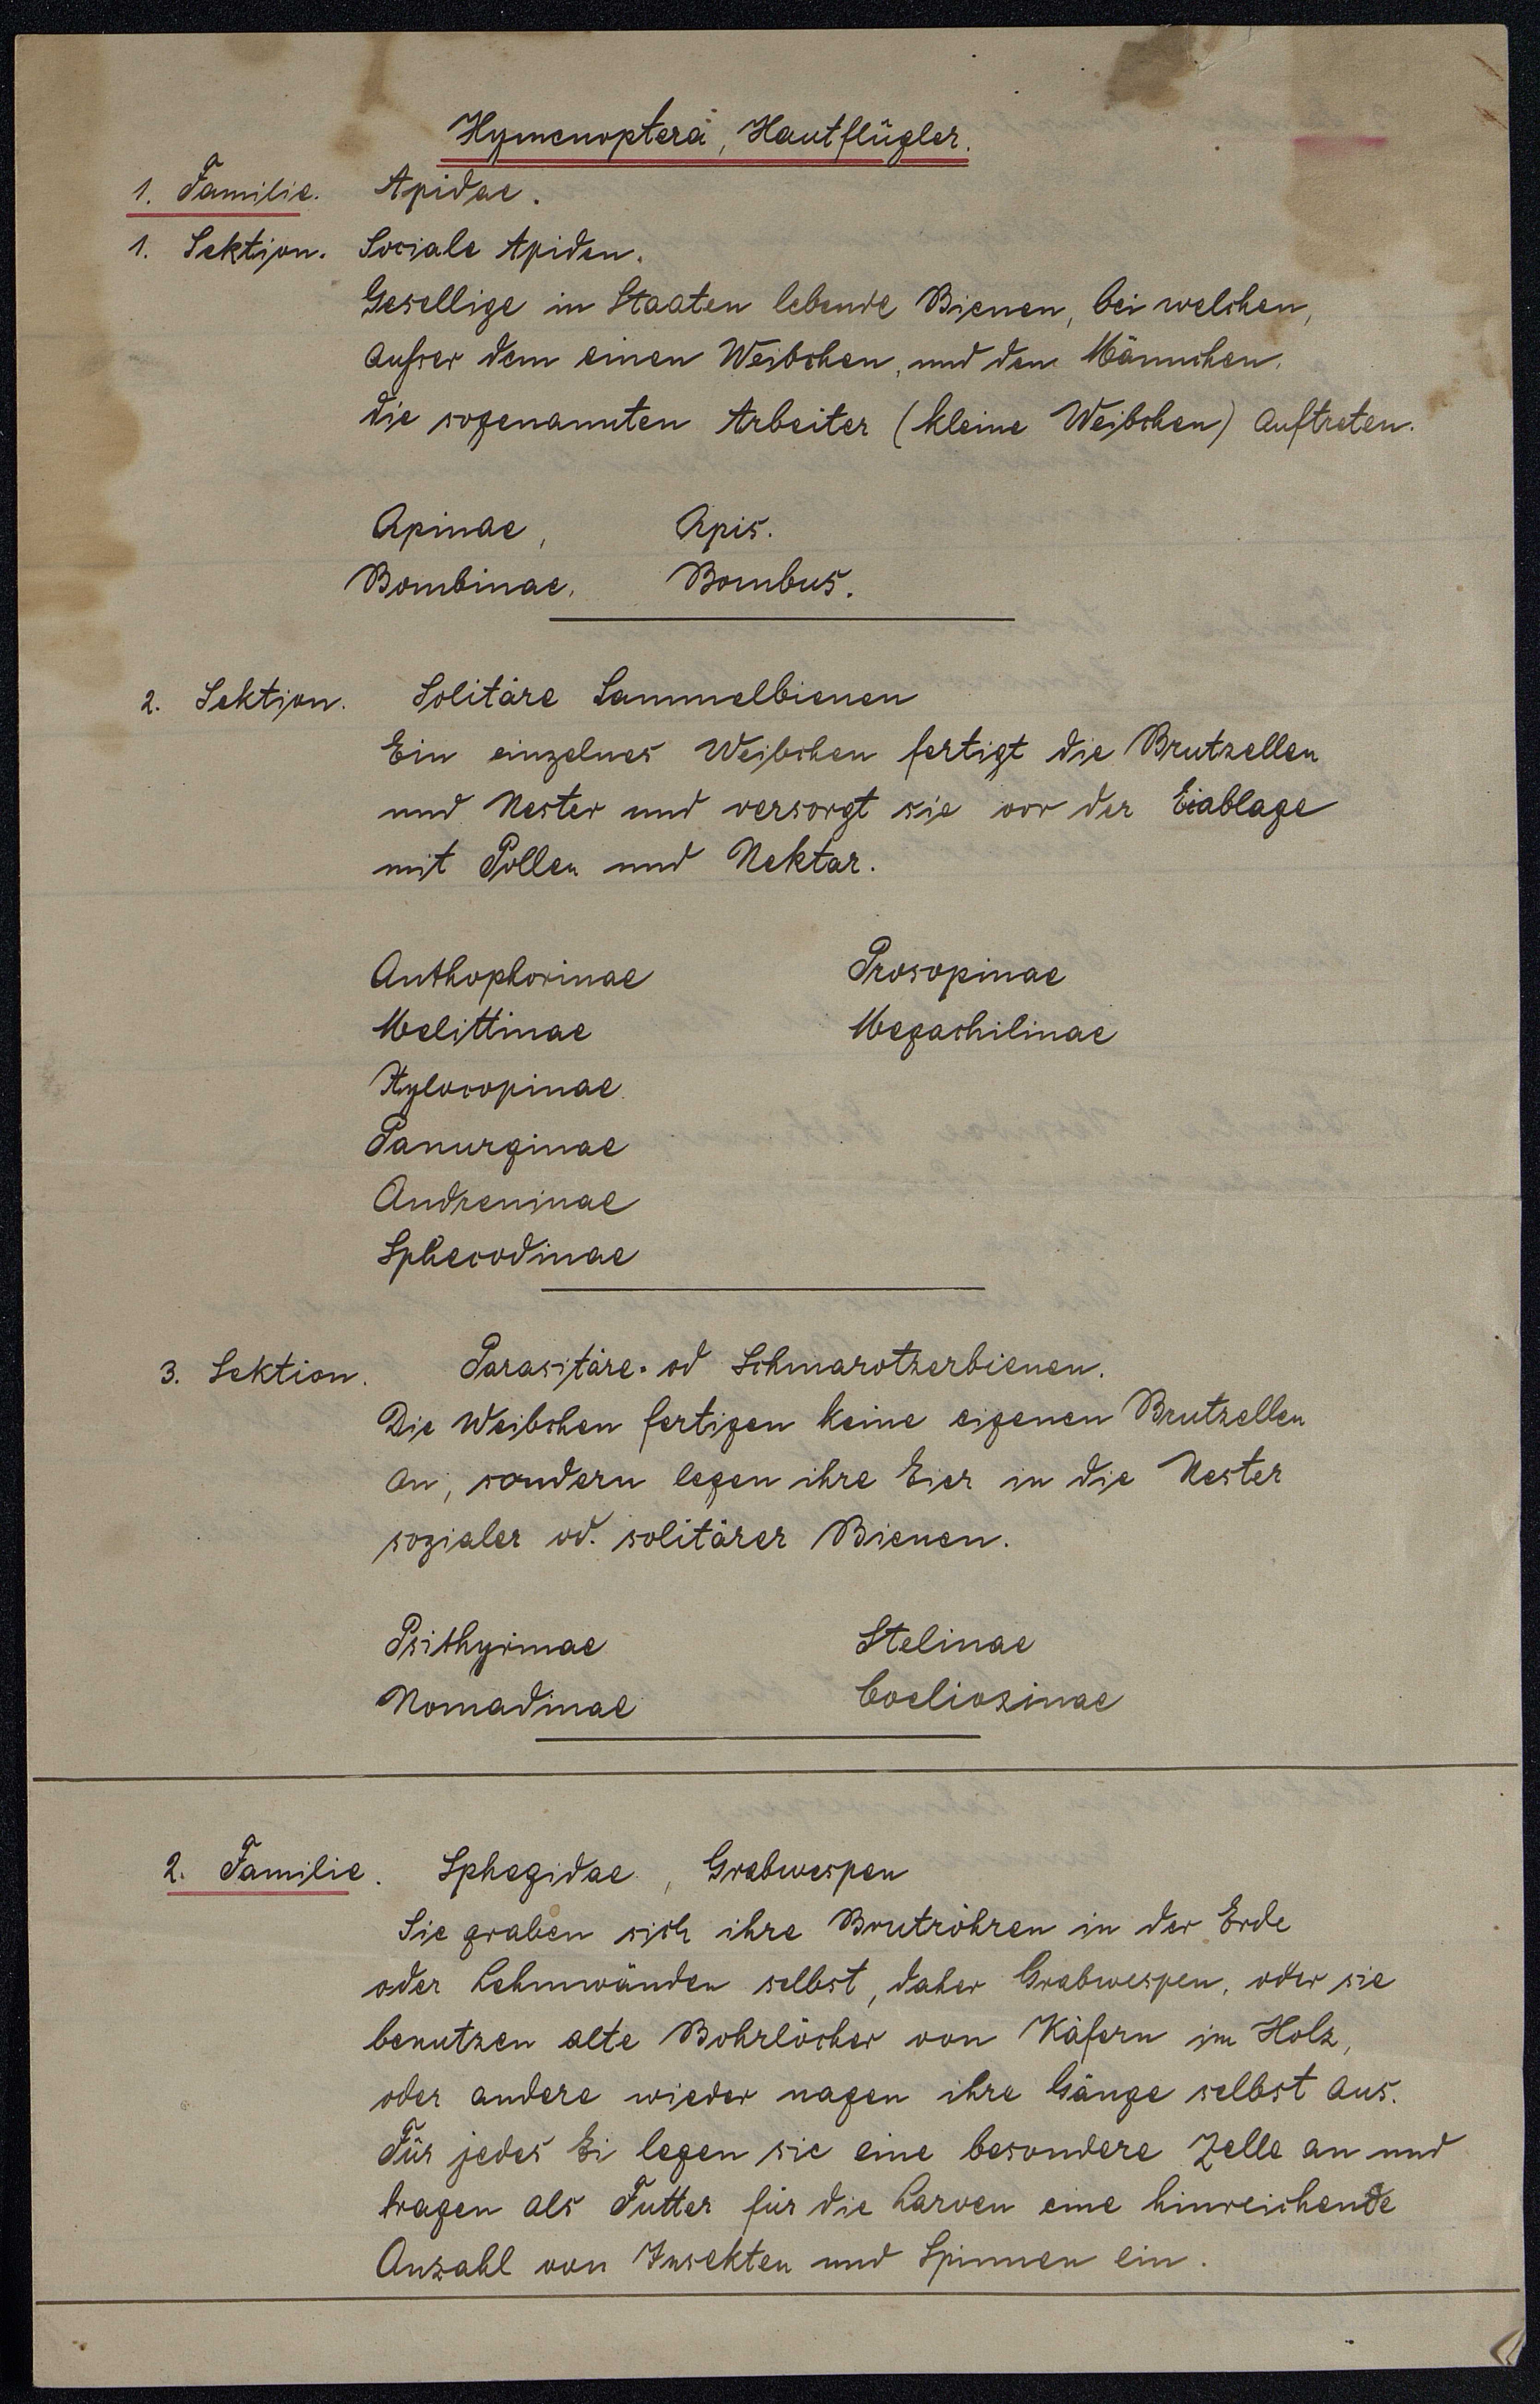 Hymenoptera, Hautflügler.
1. Familie. Apidae.
1. Sektion. Sociale Apiden.
Gesellige in Staaten lebende Bienen, bei welchen,
ausser dem einen Weibchen, und den Männchen,
die sogenannten Arbeiter (kleine Weibchen) auftreten.
Apinae, Apis.
Bombinae, Bombus.
2. Sektion. Solitäre Sammelbienen
Ein einzelnes Weibchen fertigt die Brutzellen
und Nester und versorgt sie vor der Eiablage
mit Pollen und Nektar.
Anthophorinae Prosopinae
Melittinae Megachilinae
Xylocopinae
Panurginae
Andreninae
Sphecodinae
3. Sektion. Parasitäre- od Schmarotzerbienen.
Die Weibchen fertigen keine eigenen Brutzellen
an, sondern legen ihre Eier in die Nester
sozialer od. solitärer Bienen.
Psithyrinae Stelinae
Nomadinae Coelioxinae
2. Familie. Sphegidae, Grabwespen
Sie graben sich ihre Brutröhren in der Erde
oder Lehmwänden selbst, daher Grabwespen, oder sie
benutzen alte Bohrlöcher von Käfern im Holz,
oder andere wieder nagen ihre Gänge selbst aus.
Für jedes Ei legen sie eine besondere Zelle an und
tragen als Futter für die Larven eine hinreichende
Anzahl von Insekten und Spinnen ein.